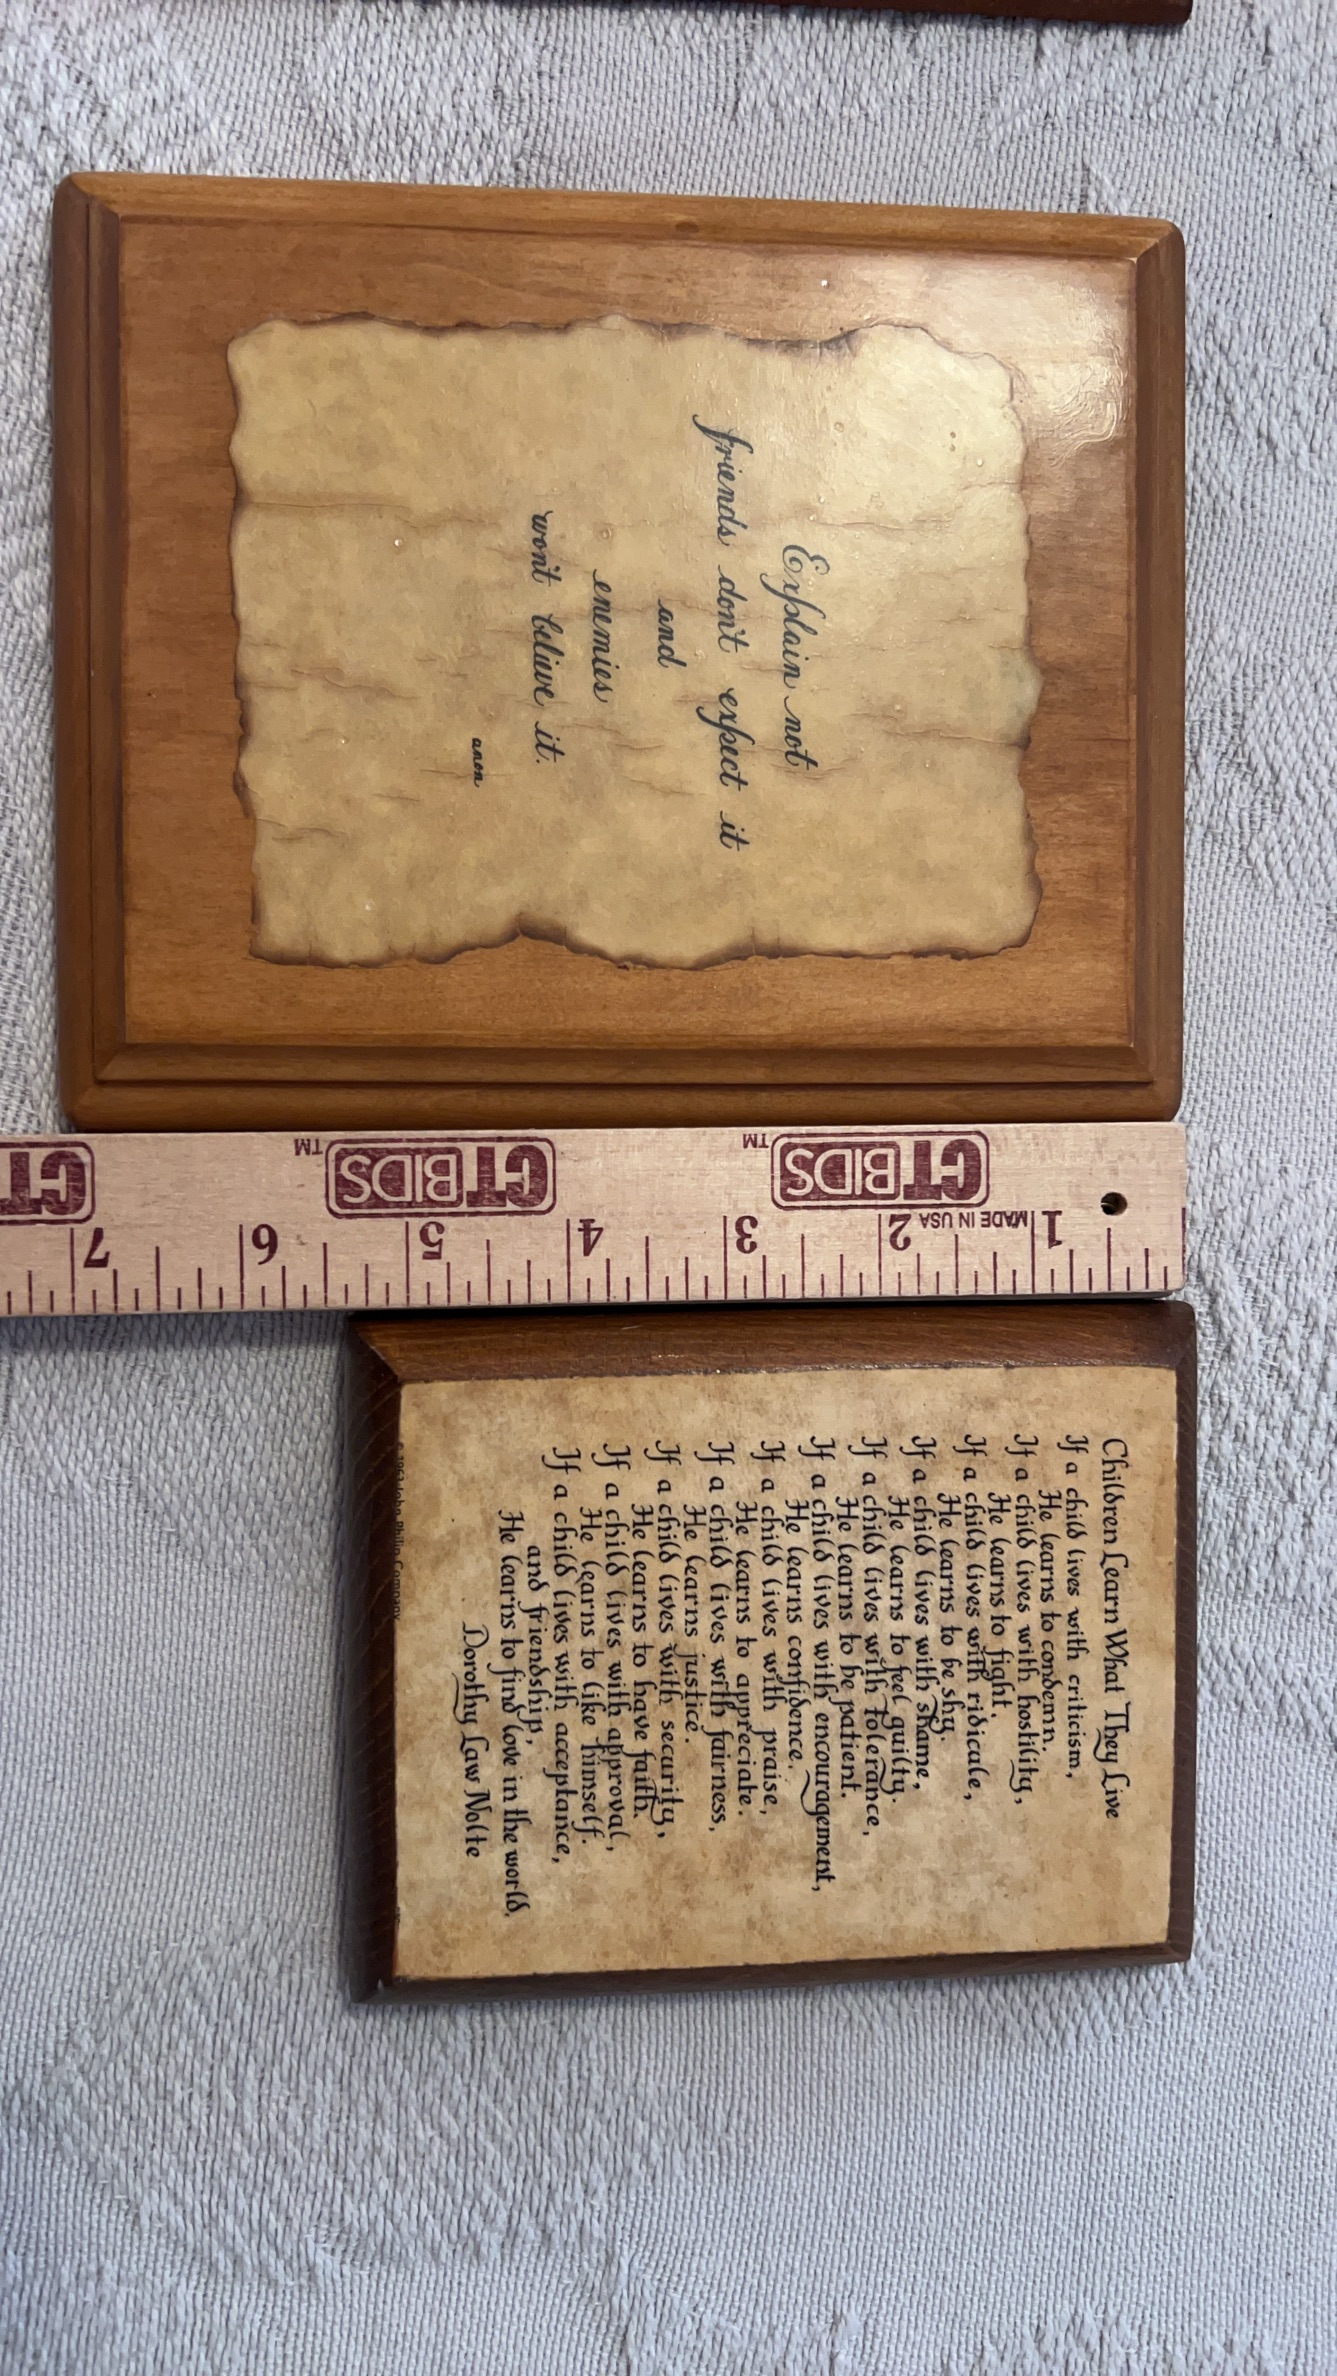 Explain not
friends don't expect it
and
enemies
won't believe it.
anon
CT
CTBIDS™
CTBIDS™
MADE IN USA
1
2
3
4
5
6
7
Children Learn What They Live
If a child lives with criticism,
He learns to condemn.
If a child lives with hostility,
He learns to fight.
If a child lives with ridicule,
He learns to be shy.
If a child lives with shame,
He learns to feel guilty.
If a child lives with tolerance,
He learns to be patient.
If a child lives with encouragement,
He learns confidence.
If a child lives with praise,
He learns to appreciate.
If a child lives with fairness,
He learns justice.
If a child lives with security,
He learns to have faith.
If a child lives with approval,
He learns to like himself.
If a child lives with acceptance,
and friendship,
He learns to find love in the world.
Dorothy Law Nolte
1963 John Philip Company